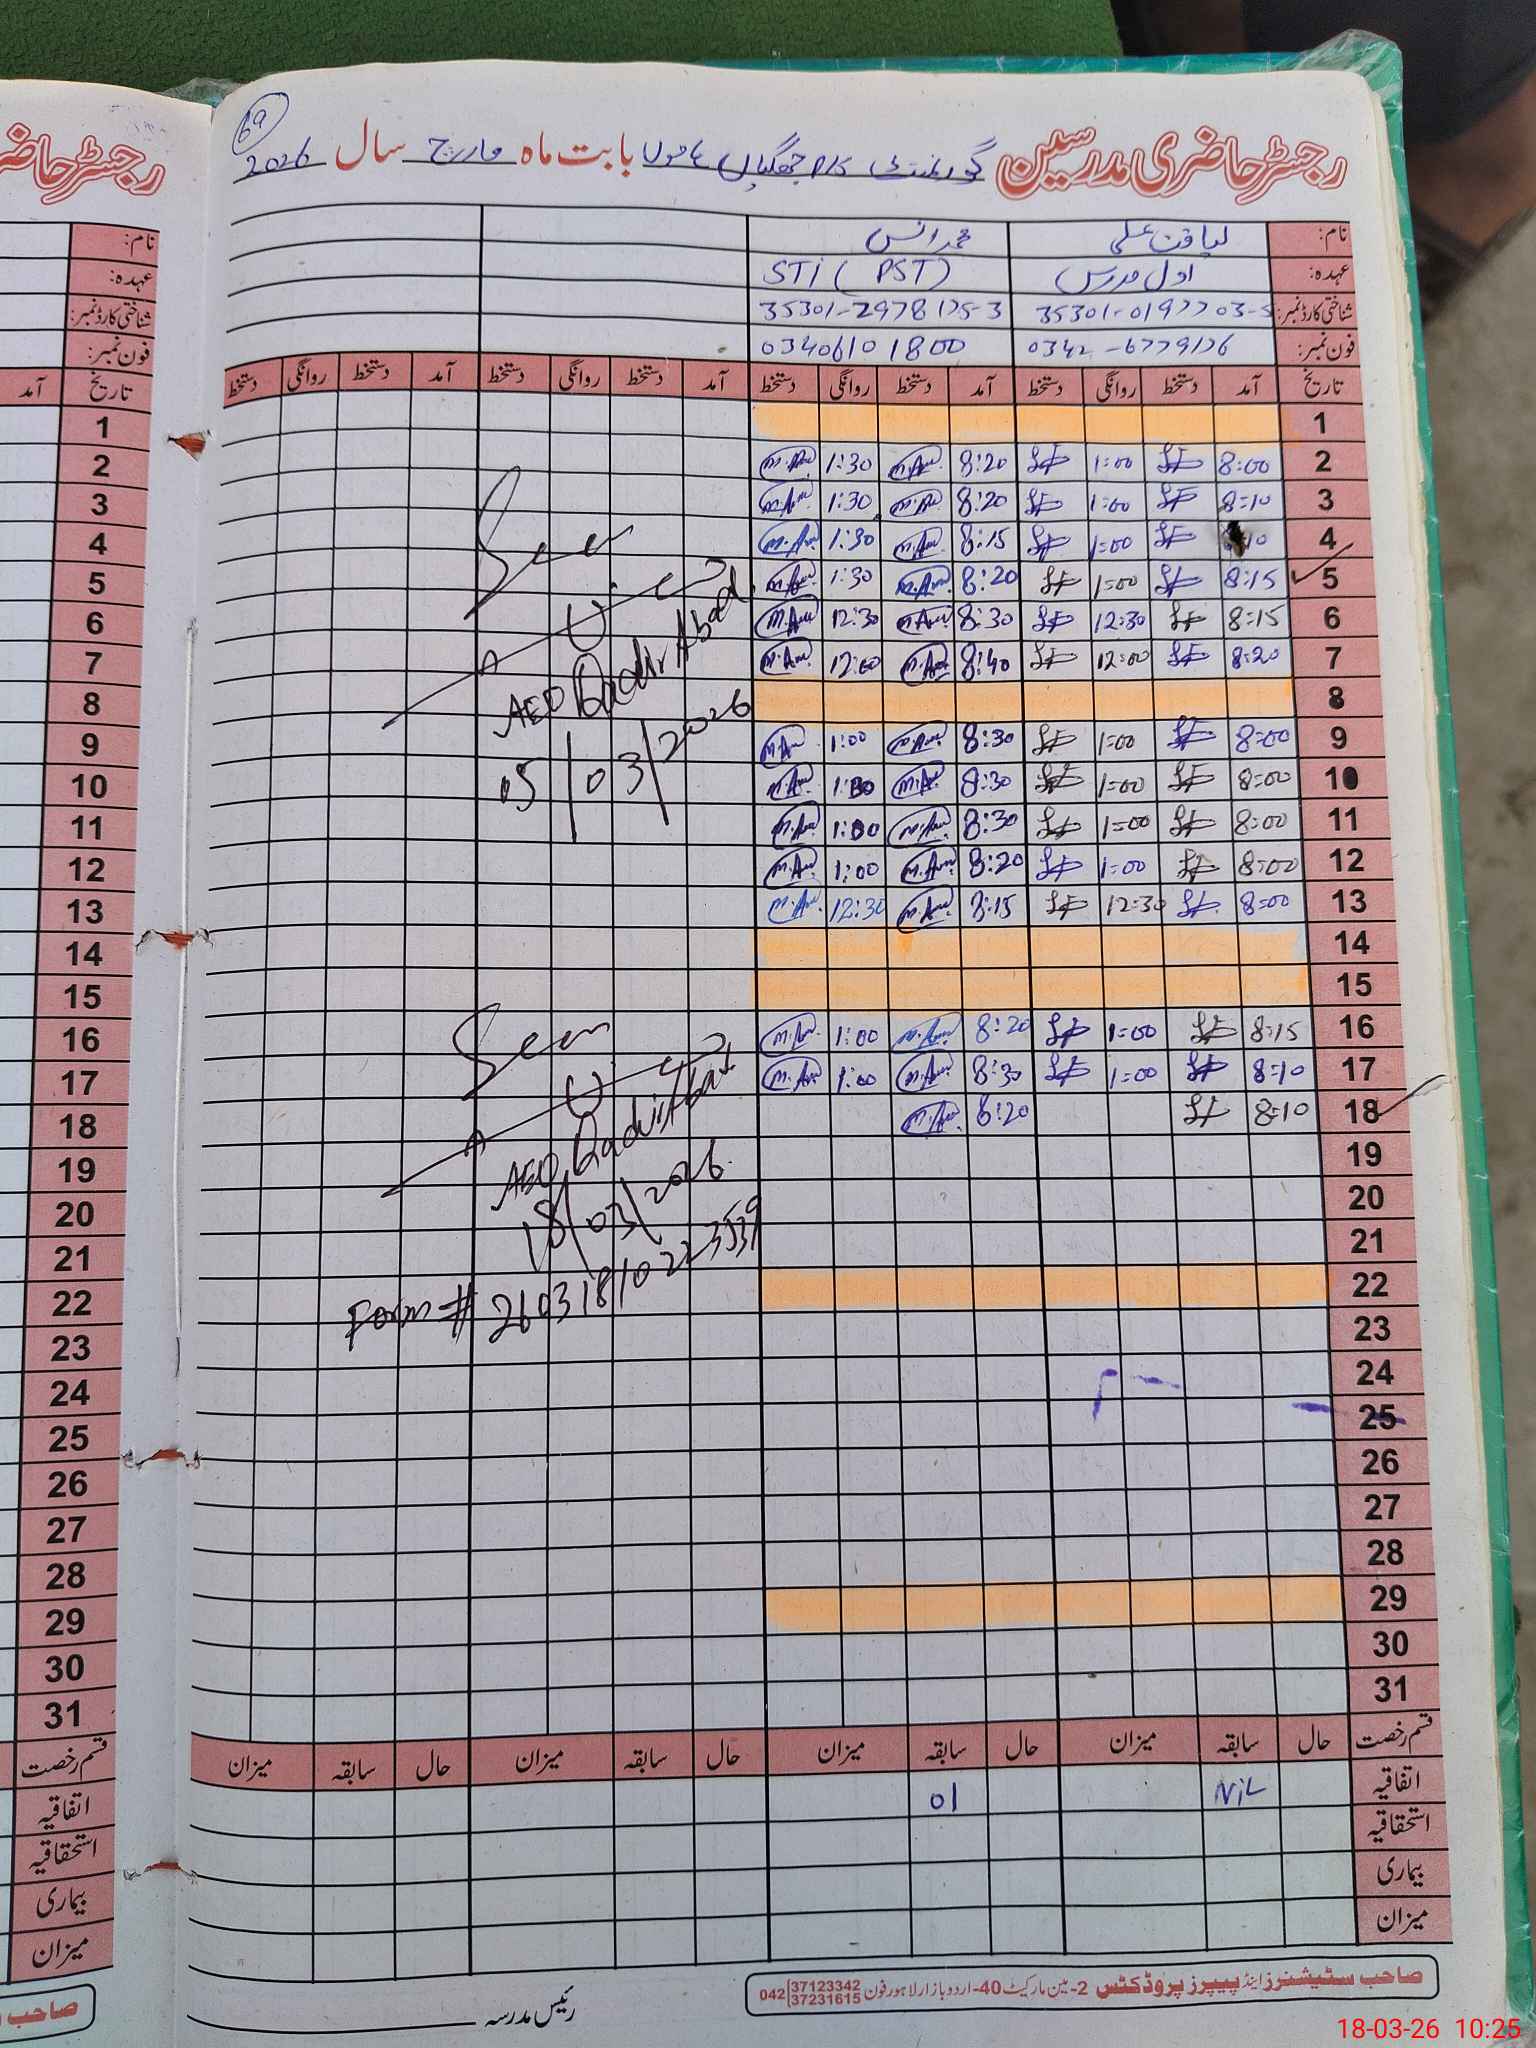 69
رجسٹر حاضری مدرسین گورنمنٹ P/S جھگیاں ماموں بابت ماہ مارچ سال 2026
نام: لیاقت علی محمد انس
عہدہ: اول مدرس STi (PST)
شناختی کارڈ نمبر: 35301-0197703-5 35301-2978175-3
فون نمبر: 0342-6779176 03406101800
تاریخ آمد دستخط روانگی دستخط آمد دستخط روانگی دستخط آمد دستخط روانگی دستخط آمد دستخط روانگی دستخط
1
2 8:00 1:00 8:20 M.Anas 1:30 M.Anas
3 8:10 1:00 8:20 1:30
4 10 1:00 8:15 1:30
5 8:15 1:00 8:20 1:30
6 8:15 12:30 8:30 12:30
7 8:20 12:00 8:40 12:00
8
9 8:00 1:00 8:30 1:00
10 8:00 1:00 8:30 1:00
11 8:00 1:00 8:30 1:00
12 8:00 1:00 8:20 1:00
13 8:00 12:30 8:15 12:30
14
15
16 8:15 1:00 8:20 1:00
17 8:10 1:00 8:30 1:00
18 8:10 8:20
19
20
21
22
23
24
25
26
27
28
29
30
31
Seen
AEO Qadir Abad.
05/03/2026
Seen
AEO Qadir Abad
18/03/2026
Form # 26031810223539
قسم رخصت حال سابقہ میزان حال سابقہ میزان حال سابقہ میزان حال سابقہ میزان
اتفاقیہ Nil 01
استحقاقیہ
بیماری
میزان
رئیس مدرسہ
صاحب سٹیشنرز اینڈ پیپرز پروڈکٹس 2-مین مارکیٹ 40-اردو بازار لاہور فون 042 37123342 37231615
رجسٹر حاضر
نام:
عہدہ:
شناختی کارڈ نمبر:
فون نمبر:
تاریخ آمد
1
2
3
4
5
6
7
8
9
10
11
12
13
14
15
16
17
18
19
20
21
22
23
24
25
26
27
28
29
30
31
قسم رخصت
اتفاقیہ
استحقاقیہ
بیماری
میزان
صاحب
18-03-26 10:25